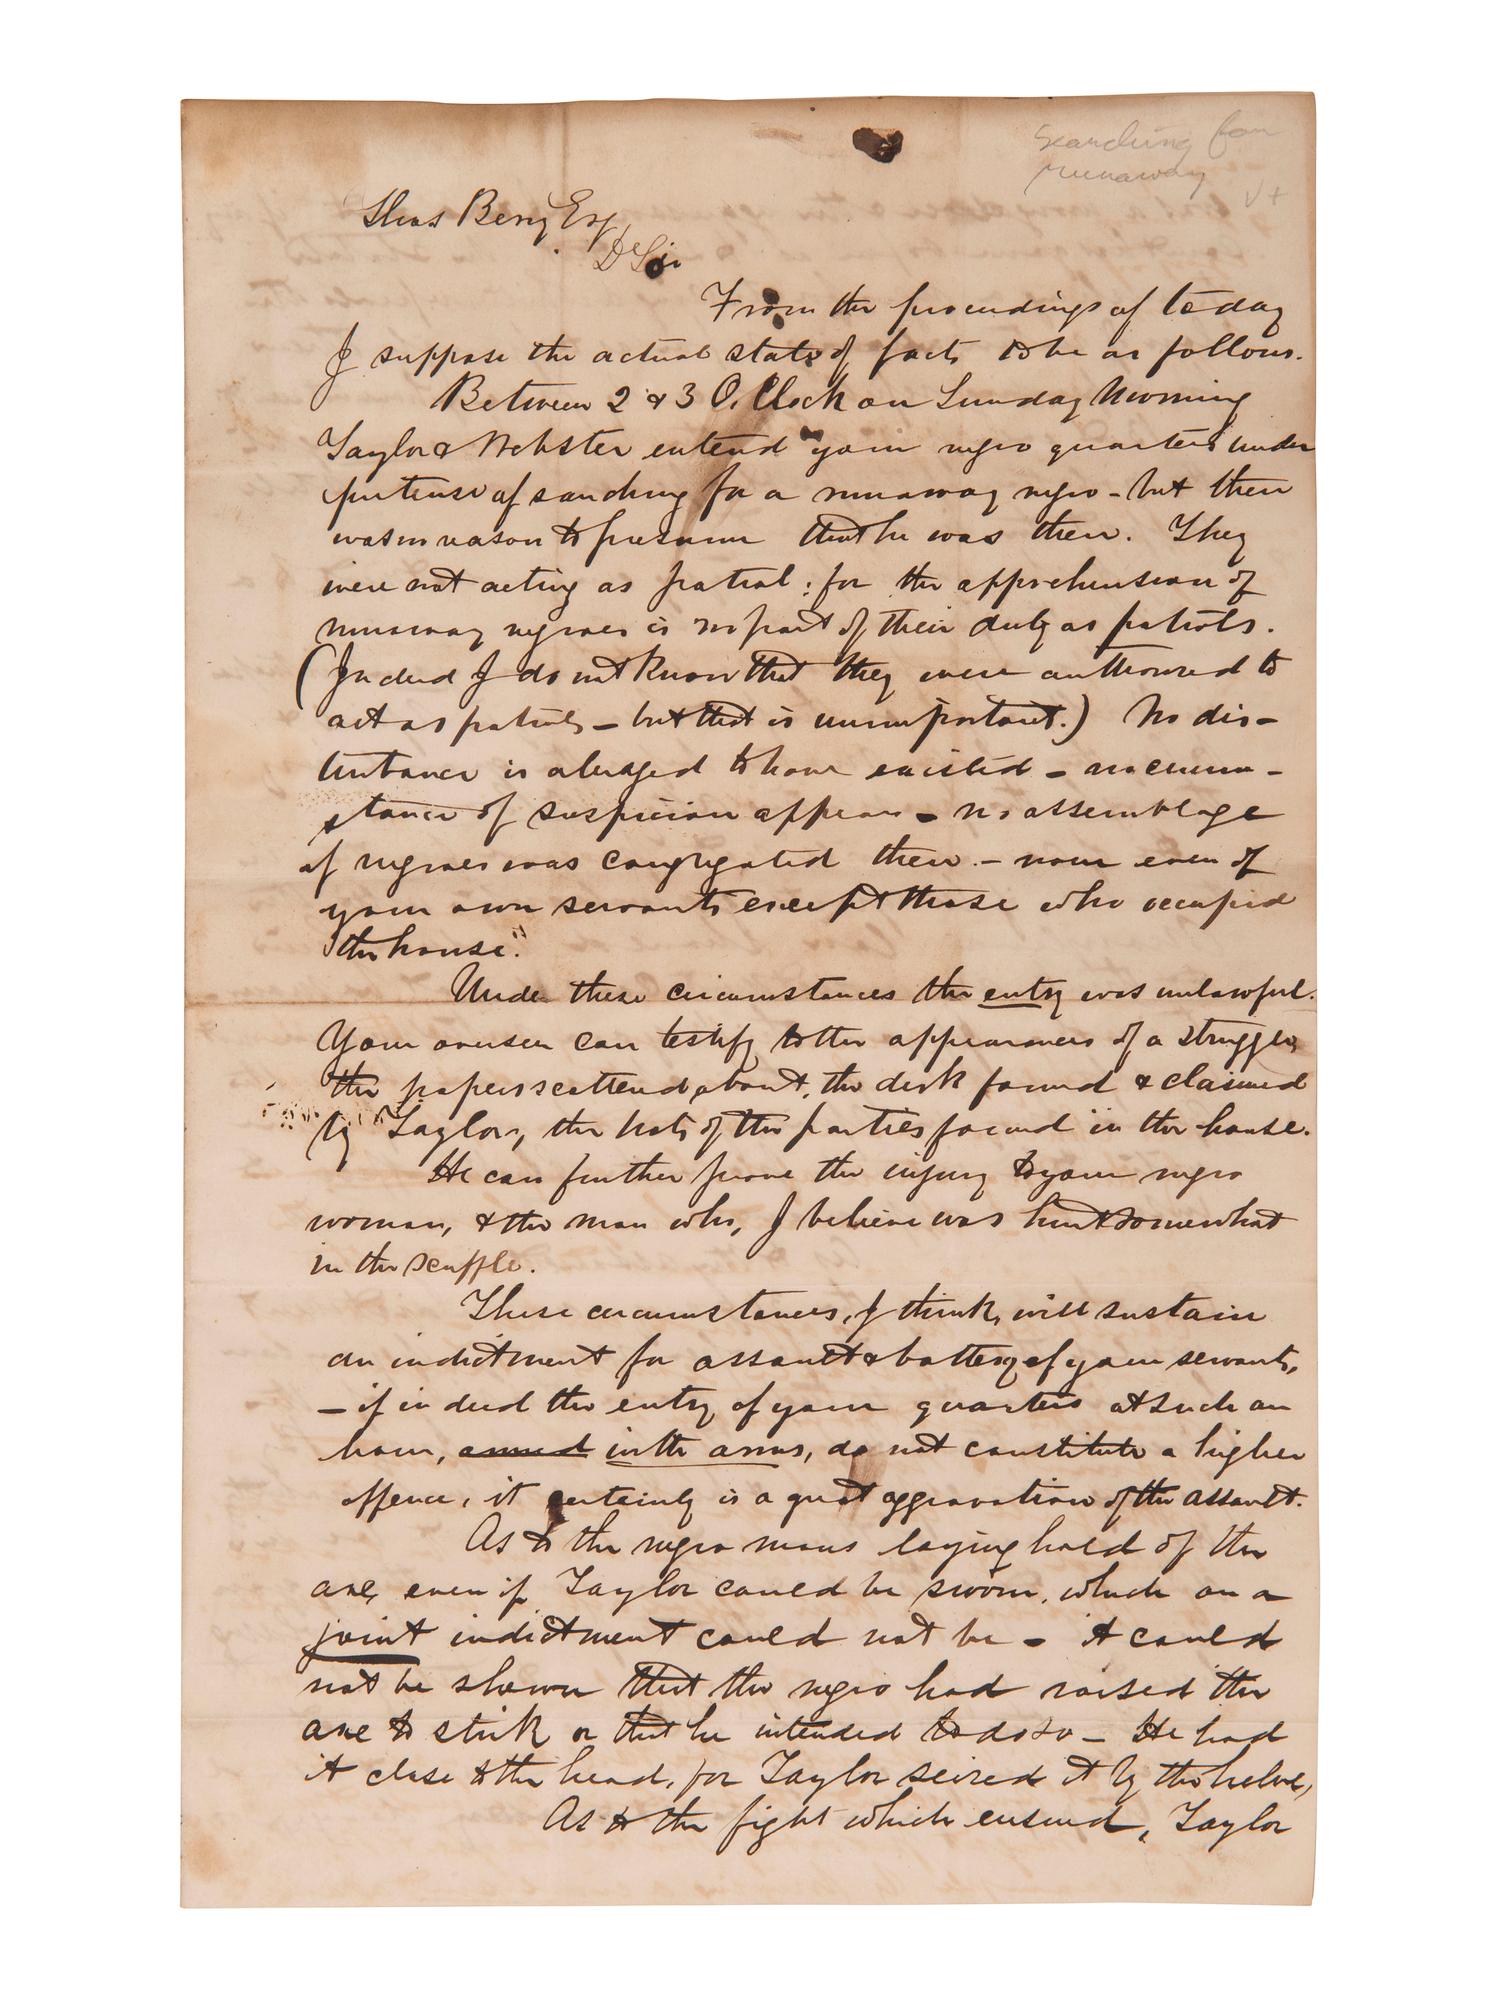 Searching for
runaway
V+
Thos Berry Esq
Dr Sir
From the proceedings of today
I suppose the actual state of facts to be as follows.
Between 2 & 3 O,Clock on Sunday Morning
Taylor & Webster entered your negro quarters under
pretense of searching for a runaway negro - but there
was no reason to presume that he was there. They
were not acting as patrol: for the apprehension of
runaway negroes is no part of their duty as patrols.
(Indeed I do not know that they were authorised to
act as patrols - but that is unimportant.) No dis-
turbance is alledged to have existed - no circum-
stance of suspicion appears - no assemblage
of negroes was congregated there. - none even of
your own servants except those who occupied
the house."
Under these circumstances the entry was unlawful.
Your overseer can testify to the appearances of a struggle,
the papers scattered about, the dirk found & claimed
by Taylor, the hats of the parties found in the house.
He can further prove the injury to your negro
woman, & the man who, I believe was hurt somewhat
in the scuffle.
These circumstances, I think, will sustain
an indictment for assault & battery of your servants,
- if indeed the entry of your quarters at such an
hour, armed with arms, do not constitute a higher
offence, it certainly is a great aggravation of the assault.
As to the negro mans laying hold of the
axe, even if Taylor could be sworn, which on a
joint indictment could not be - it could
not be shown that the negro had raised the
axe to strike or that he intended to do so - He had
it close to the head, for Taylor seized it by the helve,
As to the fight which ensued, Taylor